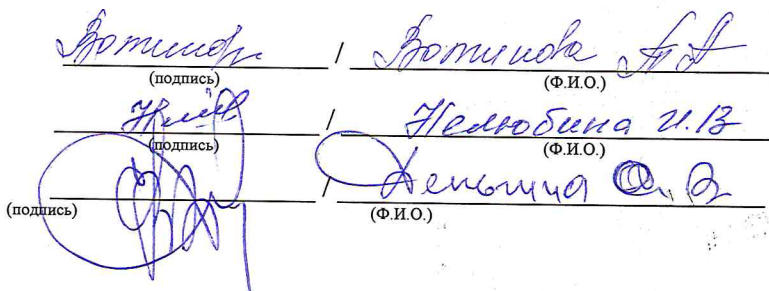 Вотинов / Вотинова Т А
(подпись) (Ф.И.О.)
/ Нелюбина И.В
(подпись) (Ф.И.О.)
/ О. В
(подпись) (Ф.И.О.)